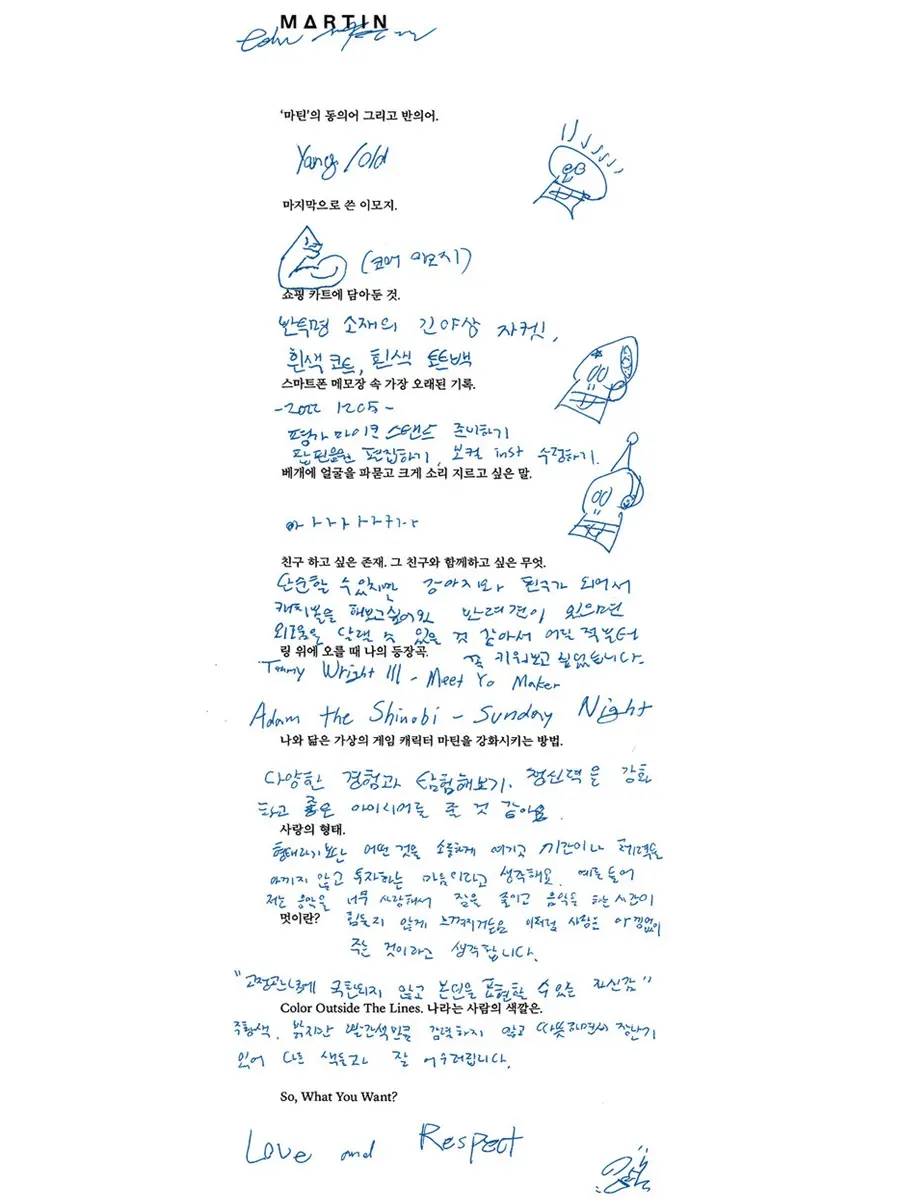 MARTIN
'마틴'의 동의어 그리고 반의어.
Yang / Old
마지막으로 쓴 이모지.
(코어 이모지)
쇼핑 카트에 담아둔 것.
반투명 소재의 긴 야상 자켓,
흰색 코트, 흰색 토트백
스마트폰 메모장 속 가장 오래된 기록.
-2022 1205-
평가 마이크 스탠드 준비하기
편집하기, 보컬 inst 수정하기.
베개에 얼굴을 파묻고 크게 소리 지르고 싶은 말.
친구 하고 싶은 존재. 그 친구와 함께하고 싶은 무엇.
단순할 수 있지만 강아지와 친구가 되어서
캐치볼을 해보고싶어요 반려견이 있으면
외로움을 달랠 수 있을 것 같아서 어릴 적부터
꼭 키워보고 싶었습니다.
링 위에 오를 때 나의 등장곡.
Tommy Wright III - Meet Yo Maker
Adam the Shinobi - Sunday Night
나와 닮은 가상의 게임 캐릭터 마틴을 강화시키는 방법.
다양한 경험과 탐험해보기. 정신력을 강화
하고 좋은 아이디어를 줄 것 같아요.
사랑의 형태.
형태라기 보단 어떤 것을 소중하게 여기고 시간이나 체력을
아끼지 않고 투자하는 마음이라고 생각해요. 예를 들어
저는 음악을 너무 사랑해서 잠을 줄이고 음악을 하는 시간이
힘들지 않게 느껴지거든요 이처럼 사랑은 아낌없이
주는 것이라고 생각합니다.
멋이란?
"고정관념에 국한되지 않고 본인을 표현할 수 있는 자신감"
Color Outside The Lines. 나라는 사람의 색깔은.
주황색. 밝지만 빨간색만큼 강렬하지 않고 따뜻하면서 장난기
있어 다른 색들과 잘 어우러집니다.
So, What You Want?
Love and Respect